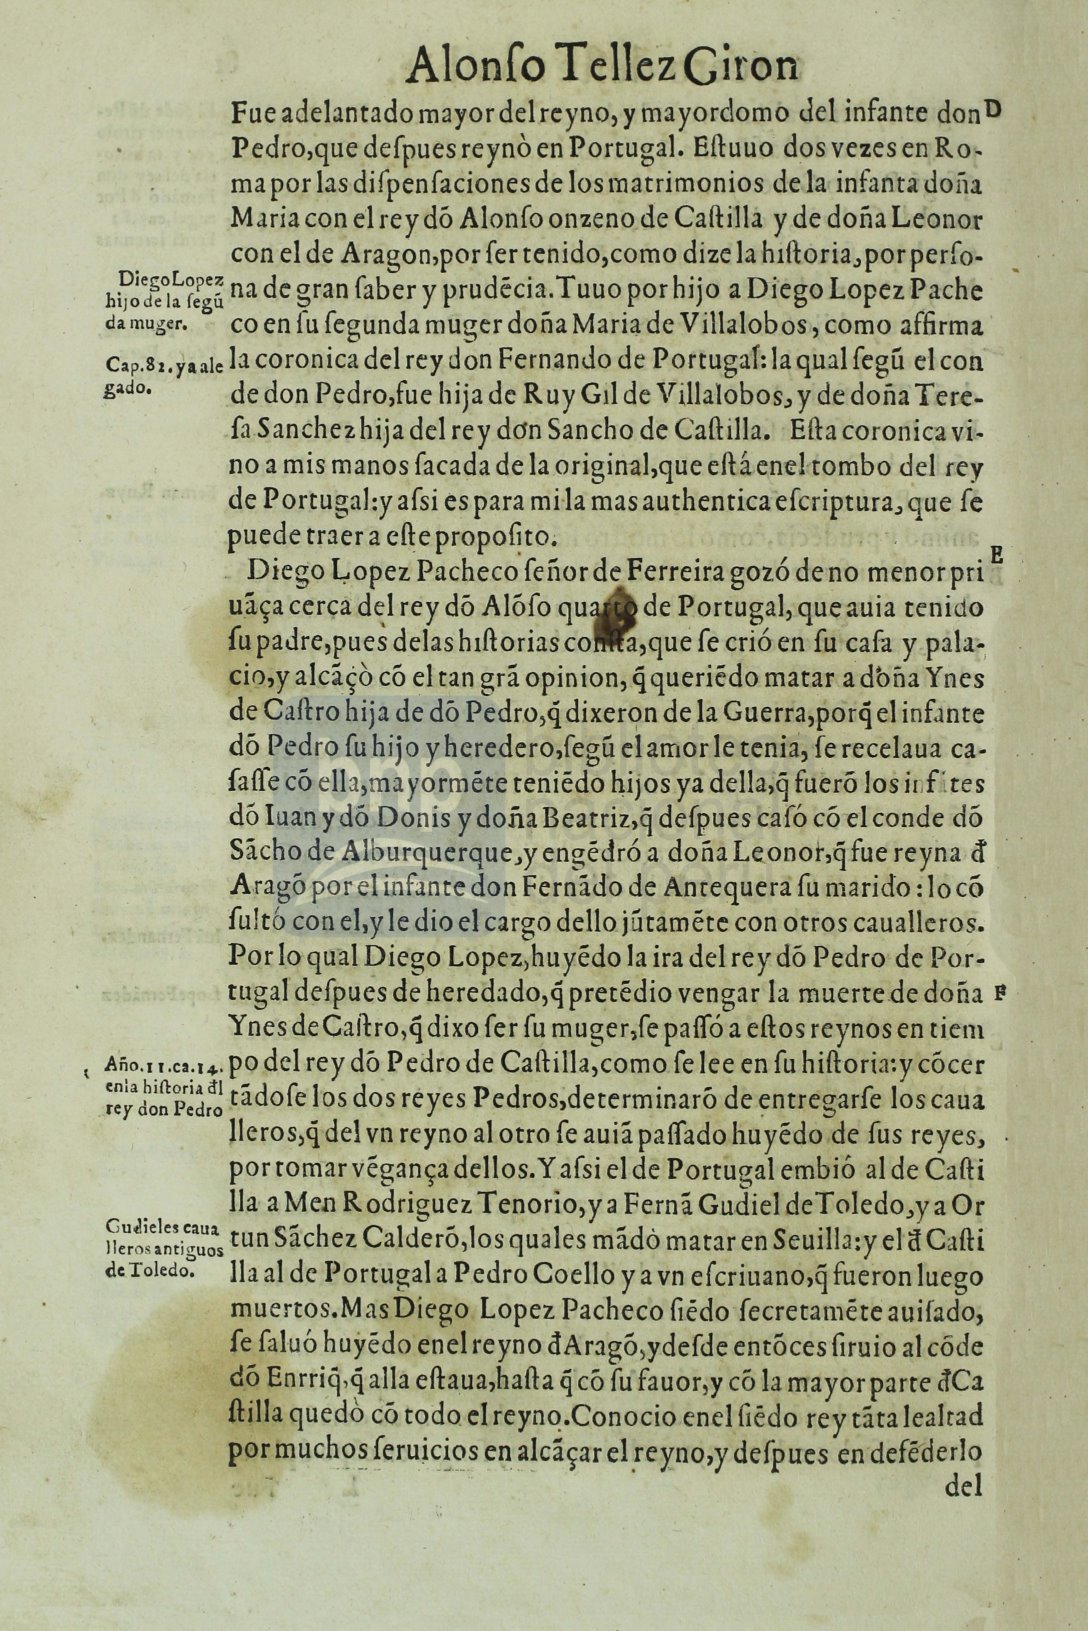 Alonſo Tellez Giron
Fue adelantado mayor del reyno, y mayordomo del infante don D
Pedro, que deſpues reynò en Portugal. Eſtuuo dos vezes en Ro-
ma por las diſpenſaciones de los matrimonios de la infanta doña
Maria con el rey dõ Alonſo onzeno de Caſtilla y de doña Leonor
con el de Aragon, por ſer tenido, como dize la hiſtoria, por perſo-
Diego Lopez
hijo de la ſegũ
da muger.
na de gran ſaber y prudẽcia. Tuuo por hijo a Diego Lopez Pache
co en ſu ſegunda muger doña Maria de Villalobos, como affirma
Cap. 82. ya ale
gado.
la coronica del rey don Fernando de Portugal: la qual ſegũ el con
de don Pedro, fue hija de Ruy Gil de Villalobos, y de doña Tere-
ſa Sanchez hija del rey don Sancho de Caſtilla. Eſta coronica vi-
no a mis manos ſacada de la original, que eſtá enel tombo del rey
de Portugal: y aſsi es para mi la mas authentica eſcriptura, que ſe
puede traer a eſte propoſito.
E
Diego Lopez Pacheco ſeñor de Ferreira gozó de no menor pri
uãça cerca del rey dõ Alõſo quarto de Portugal, que auia tenido
ſu padre, pues delas hiſtorias conſta, que ſe crió en ſu caſa y pala-
cio, y alcãçò cõ el tan grã opinion, q̃ queriẽdo matar a doña Ynes
de Caſtro hija de dõ Pedro, q̃ dixeron de la Guerra, porq̃ el infante
dõ Pedro ſu hijo y heredero, ſegũ el amor le tenia, ſe recelaua ca-
ſaſſe cõ ella, mayormẽte teniẽdo hijos ya della, q̃ fuerõ los infãtes
dõ Iuan y dõ Donis y doña Beatriz, q̃ deſpues caſó cõ el conde dõ
Sãcho de Alburquerque, y engẽdró a doña Leonor, q̃ fue reyna đ
Aragõ por el infante don Fernãdo de Antequera ſu marido: lo cõ
ſultó con el, y le dio el cargo dello jũtamẽte con otros caualleros.
Por lo qual Diego Lopez, huyẽdo la ira del rey dõ Pedro de Por-
tugal deſpues de heredado, q̃ pretẽdio vengar la muerte de doña F
Ynes de Caſtro, q̃ dixo ſer ſu muger, ſe paſſó a eſtos reynos en tiem
Año. 11. ca. 14.
enla hiſtoria đl
rey don Pedro
po del rey dõ Pedro de Caſtilla, como ſe lee en ſu hiſtoria: y cõcer
tãdoſe los dos reyes Pedros, determinarõ de entregarſe los caua
lleros, q̃ del vn reyno al otro ſe auiã paſſado huyẽdo de ſus reyes,
por tomar vẽgança dellos. Y aſsi el de Portugal embió al de Caſti
lla a Men Rodriguez Tenorio, y a Fernã Gudiel de Toledo, y a Or
Gudieles caua
lleros antiguos
de Toledo.
tun Sãchez Calderõ, los quales mãdò matar en Seuilla: y el đ Caſti
lla al de Portugal a Pedro Coello y a vn eſcriuano, q̃ fueron luego
muertos. Mas Diego Lopez Pacheco ſiẽdo ſecretamẽte auiſado,
ſe ſaluó huyẽdo enel reyno đ Aragõ, y deſde entõces ſiruio al cõde
dõ Enrriq̃, q̃ alla eſtaua, haſta q̃ cõ ſu fauor, y cõ la mayor parte đ Ca
ſtilla quedò cõ todo el reyno. Conocio enel ſiẽdo rey tãta lealtad
por muchos ſeruicios en alcãçar el reyno, y deſpues en defẽderlo
del